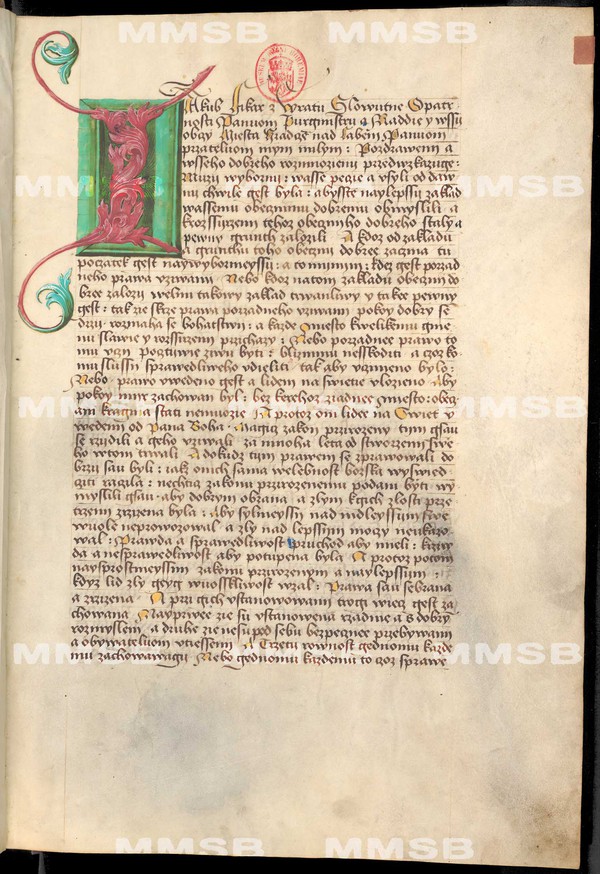 Jakub Pikar z Wratu Slowutne Opatr
nosti Panuom Purgmistru a Raddie y wssii
obczy Miesta Hradcze nad Labem Panuom
przateluom mym milym : Pozdraweni a
wsseho dobreho rozmnozieni przedwzkazugi :
Muzii wyborni : wasse pecie a vsyli od daw
nu chwile gest byla : abysste naylepssii zaklad
wassemu obeczniimu dobremu obmyslili a
krozssijrzeni tehoz obecznjho dobreho staly a
pewny grunth zalozili A kdoz od zakladu
a grunthu toho obecni dobree zaczina tu
poczatek gest naywybornieyssii : a to mimini : kdez gest porzad
neho prawa vziwani Nebo kdoz natom zakladu obeczni do
bree zalozii welmi takowy zaklad trwanliwy y takee pewny
gest : tak zie skrze prawa porzadneho vziwani pokoy dobry se
drzii rozmaha se bohactwii : a kazde miesto kwelikemu gme
nu slawie y rozssirzeni przichazy : Nebo porzadnee prawo to
mu vczi Pocztiwie ziwu byti : bliznimu nesskoditi a czoz ko
mu slussii sprawedliweho vdieliti tak aby vczinieno bylo :
Nebo prawo vwedeno gest a lidem na swietie vlozieno Aby
pokoy mir zachowan byl : bez kterehoz ziadnee miesto : obecz
ani kragina stati nemuozie A protoz oni lidee na Swiet v
wedeni od Pana Boha Magicz zakon przirozeny tim gsau
se rziidili a geho vziwali za mnoha leta od stworzeni swie
ho wtom trwali A dokudz tim prawem se zprawowali do
brzii sau byli : iakz onich sama welebnost borska wyswied
cziti raczila : nechticz zakonu przirozenemu podani byti wy
myslili gsau aby dobrym obrana a zlym kgich zlosti prze
trzeni zrzizena byla : Aby sylnieyssii nad mdleyssiim swe
wuole neprowozowal a zly nad lepssiim moczy neukazo
wal : Prawda a sprawedliwost pruchod aby mieli : krziw
da a nesprawedliwost aby potupena byla A protoz potom
naysprostnieyssim zakoni przirozenym a naylepssiim :
kdyz lid zly geyg wuosskliwost wzal : Prawa sau sebrana
a zrzizena A przi gich vstanowowani trogi wiecz gest za
chowana Nayprwee zie su vstanowena rzadnie a s dobrym
rozmyslem a druhe zie nesu pod sebu bezpecznee przebywani
a obywateluom vtiesseni A Trzeti rownost gednomu kazde
mu zachowawagii Nebo gednomu kazdemu to czoz sprawe